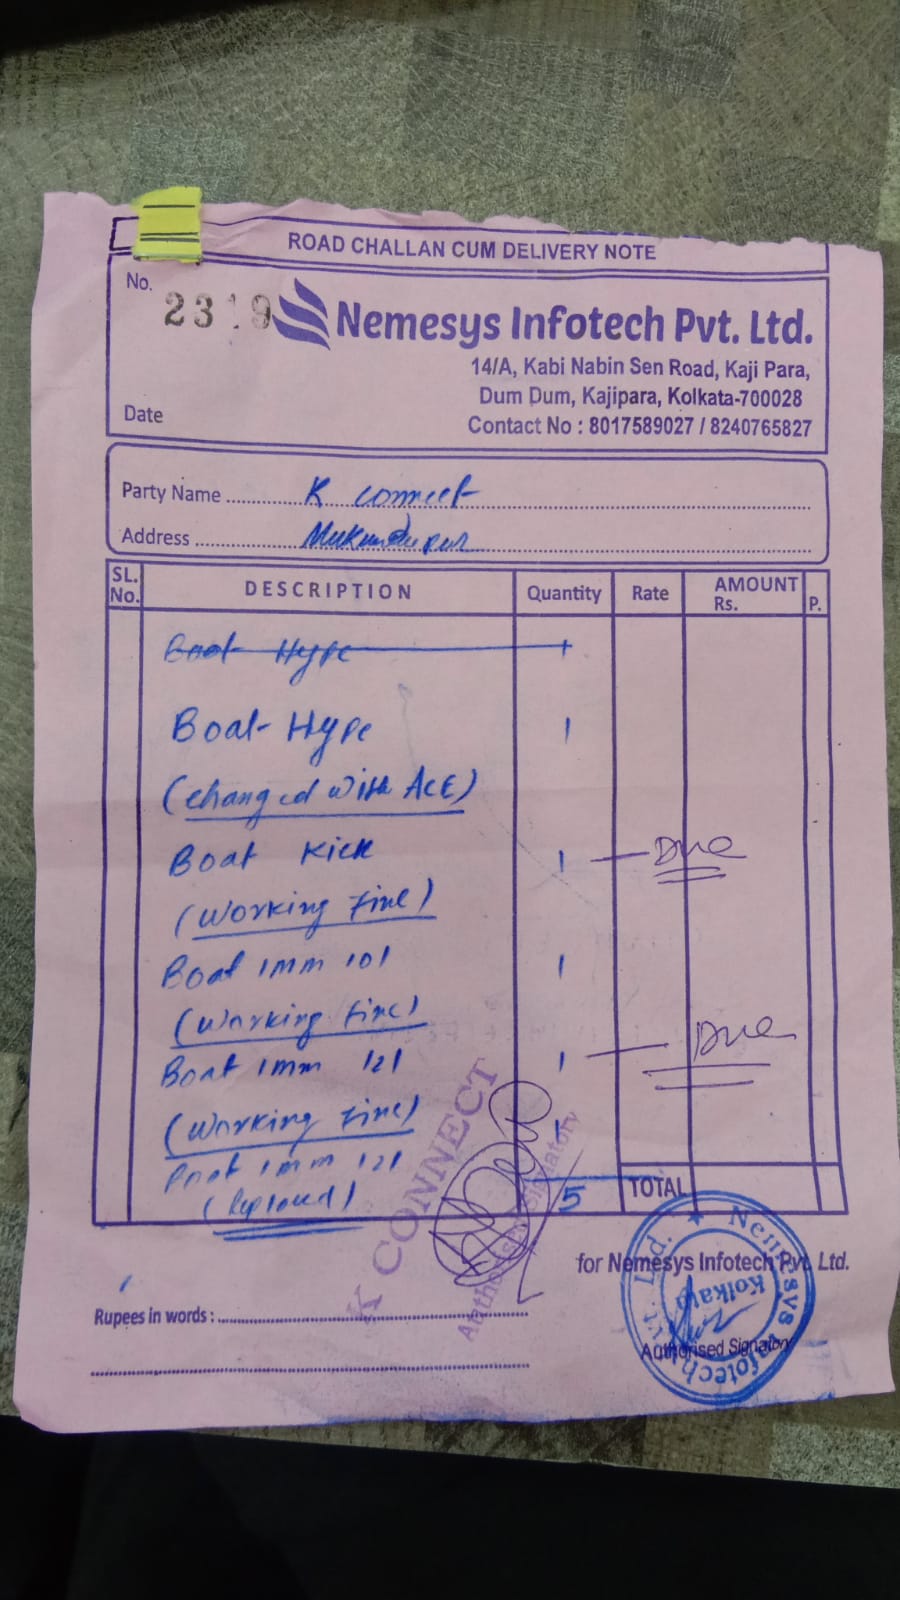 ROAD CHALLAN CUM DELIVERY NOTE
No.
2319
Nemesys Infotech Pvt. Ltd.
14/A, Kabi Nabin Sen Road, Kaji Para,
Dum Dum, Kajipara, Kolkata-700028
Contact No : 8017589027 / 8240765827
Date
Party Name K Connect
Address Mukundupur
SL. No. DESCRIPTION Quantity Rate AMOUNT Rs. P.
Boat Hype 1
Boat Hype 1
(changed with ACE)
Boat Kick 1 Due
(Working fine)
Boat 1mm 101 1
(Working fine)
Boat 1mm 121 1 Due
(Working fine)
Boat 1mm 121
(Replaced)
5 TOTAL
K CONNECT
Authorised Signatory
for Nemesys Infotech Pvt. Ltd.
Nemesys Infotech Pvt. Ltd.
Kolkata
Rupees in words :
Authorised Signatory